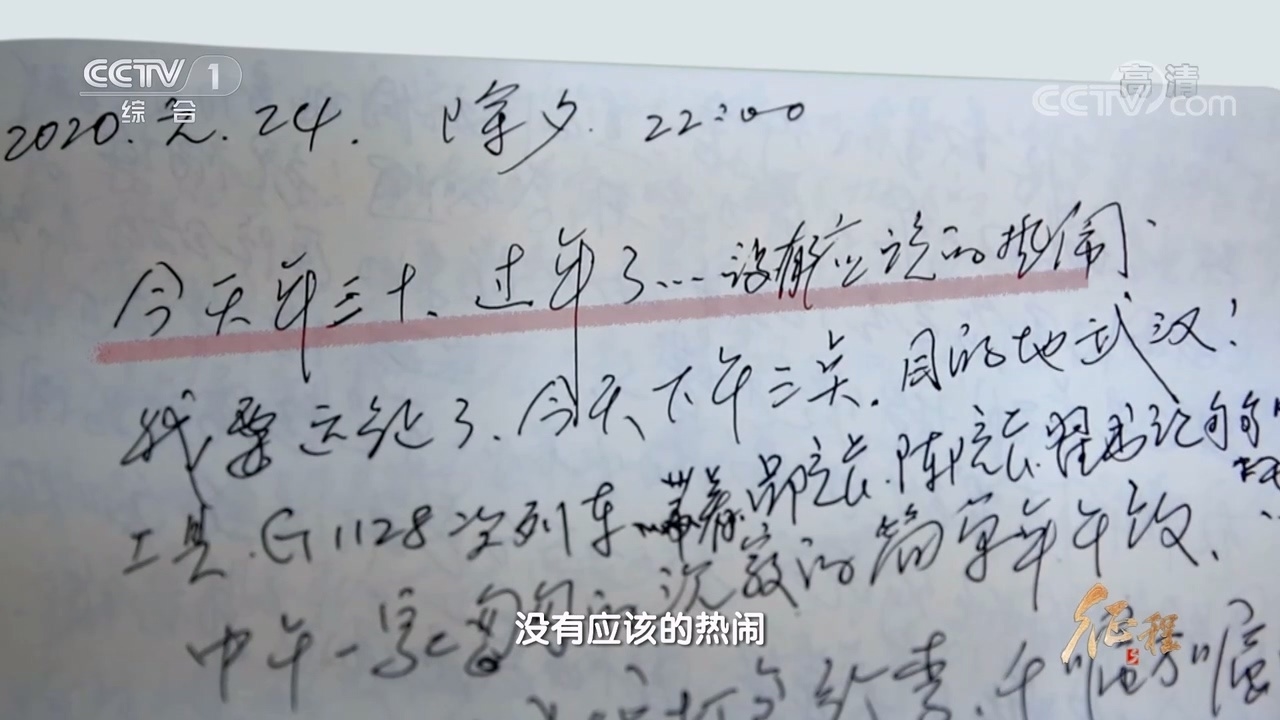 CCTV 1
综合
高清
CCTV.com
2020.元.24. 除夕. 22:00
今天年三十、过年了…没有应该的热闹.
我要远征了.今天下午三点.目的地武汉!
工具.G1128次列车.带着邵院长.陈院长.翟书记
中午一家匆匆的沉寂的简单年午饭、
没有应该的热闹
征程